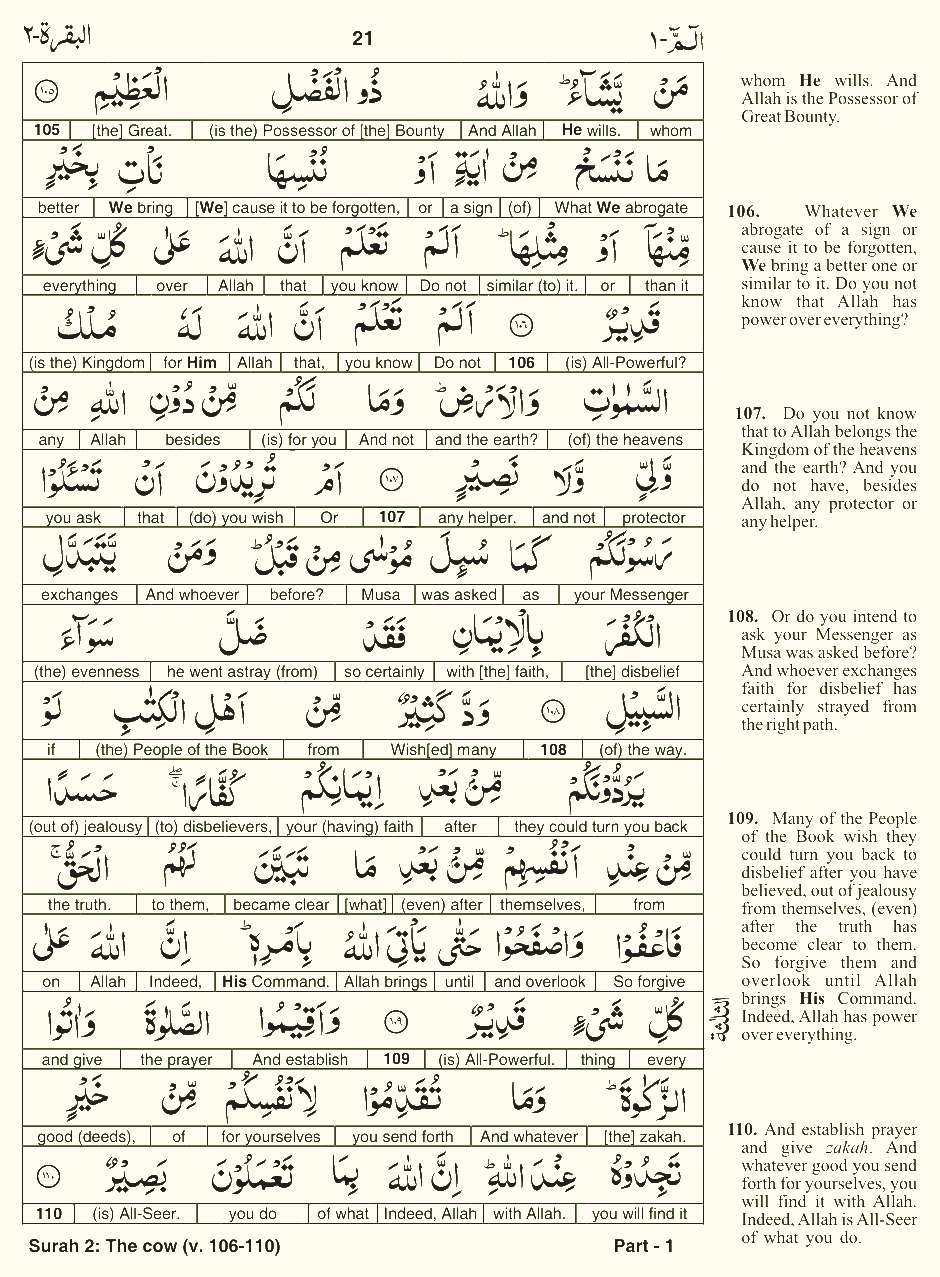 البقرة-٢
21
الٓمّٓ-١
مَنْ يَّشَآءُ ؕ وَاللّٰهُ ذُو الْفَضْلِ الْعَظِيْمِ ١٠٥
105 [the] Great. (is the) Possessor of [the] Bounty And Allah He wills. whom
مَا نَنْسَخْ مِنْ اٰيَةٍ اَوْ نُنْسِهَا نَاْتِ بِخَيْرٍ
better We bring [We] cause it to be forgotten, or a sign (of) What We abrogate
مِّنْهَآ اَوْ مِثْلِهَا ؕ اَلَمْ تَعْلَمْ اَنَّ اللّٰهَ عَلٰى كُلِّ شَىْءٍ
everything over Allah that you know Do not similar (to) it. or than it
قَدِيْرٌ ١٠٦ اَلَمْ تَعْلَمْ اَنَّ اللّٰهَ لَهٗ مُلْكُ
(is the) Kingdom for Him Allah that, you know Do not 106 (is) All-Powerful?
السَّمٰوٰتِ وَالْاَرْضِ ؕ وَمَا لَكُمْ مِّنْ دُوْنِ اللّٰهِ مِنْ
any Allah besides (is) for you And not and the earth? (of) the heavens
وَّلِىٍّ وَّلَا نَصِيْرٍ ١٠٧ اَمْ تُرِيْدُوْنَ اَنْ تَسْـَٔلُوْا
you ask that (do) you wish Or 107 any helper. and not protector
رَسُوْلَكُمْ كَمَا سُىِٕلَ مُوْسٰى مِنْ قَبْلُ ؕ وَمَنْ يَّتَبَدَّلِ
exchanges And whoever before? Musa was asked as your Messenger
الْكُفْرَ بِالْاِيْمَانِ فَقَدْ ضَلَّ سَوَآءَ
(the) evenness he went astray (from) so certainly with [the] faith, [the] disbelief
السَّبِيْلِ ١٠٨ وَدَّ كَثِيْرٌ مِّنْ اَهْلِ الْكِتٰبِ لَوْ
if (the) People of the Book from Wish[ed] many 108 (of) the way.
يَرُدُّوْنَكُمْ مِّنْۢ بَعْدِ اِيْمَانِكُمْ كُفَّارًا ۖۚ حَسَدًا
(out of) jealousy (to) disbelievers, your (having) faith after they could turn you back
مِّنْ عِنْدِ اَنْفُسِهِمْ مِّنْۢ بَعْدِ مَا تَبَيَّنَ لَهُمُ الْحَقُّ ۚ
the truth. to them, became clear [what] (even) after themselves, from
فَاعْفُوْا وَاصْفَحُوْا حَتّٰى يَاْتِىَ اللّٰهُ بِاَمْرِهٖ ؕ اِنَّ اللّٰهَ عَلٰى
on Allah Indeed, His Command. Allah brings until and overlook So forgive
كُلِّ شَىْءٍ قَدِيْرٌ ١٠٩ وَاَقِيْمُوا الصَّلٰوةَ وَاٰتُوا
and give the prayer And establish 109 (is) All-Powerful. thing every
الزَّكٰوةَ ؕ وَمَا تُقَدِّمُوْا لِاَنْفُسِكُمْ مِّنْ خَيْرٍ
good (deeds), of for yourselves you send forth And whatever [the] zakah.
تَجِدُوْهُ عِنْدَ اللّٰهِ ؕ اِنَّ اللّٰهَ بِمَا تَعْمَلُوْنَ بَصِيْرٌ ١١٠
110 (is) All-Seer. you do of what Indeed, Allah with Allah. you will find it
Surah 2: The cow (v. 106-110)
Part - 1
whom He wills. And
Allah is the Possessor of
Great Bounty.
106. Whatever We
abrogate of a sign or
cause it to be forgotten,
We bring a better one or
similar to it. Do you not
know that Allah has
power over everything?
107. Do you not know
that to Allah belongs the
Kingdom of the heavens
and the earth? And you
do not have, besides
Allah, any protector or
any helper.
108. Or do you intend to
ask your Messenger as
Musa was asked before?
And whoever exchanges
faith for disbelief has
certainly strayed from
the right path.
109. Many of the People
of the Book wish they
could turn you back to
disbelief after you have
believed, out of jealousy
from themselves, (even)
after the truth has
become clear to them.
So forgive them and
overlook until Allah
brings His Command.
Indeed, Allah has power
over everything.
الثلثة
110. And establish prayer
and give zakah. And
whatever good you send
forth for yourselves, you
will find it with Allah.
Indeed, Allah is All-Seer
of what you do.